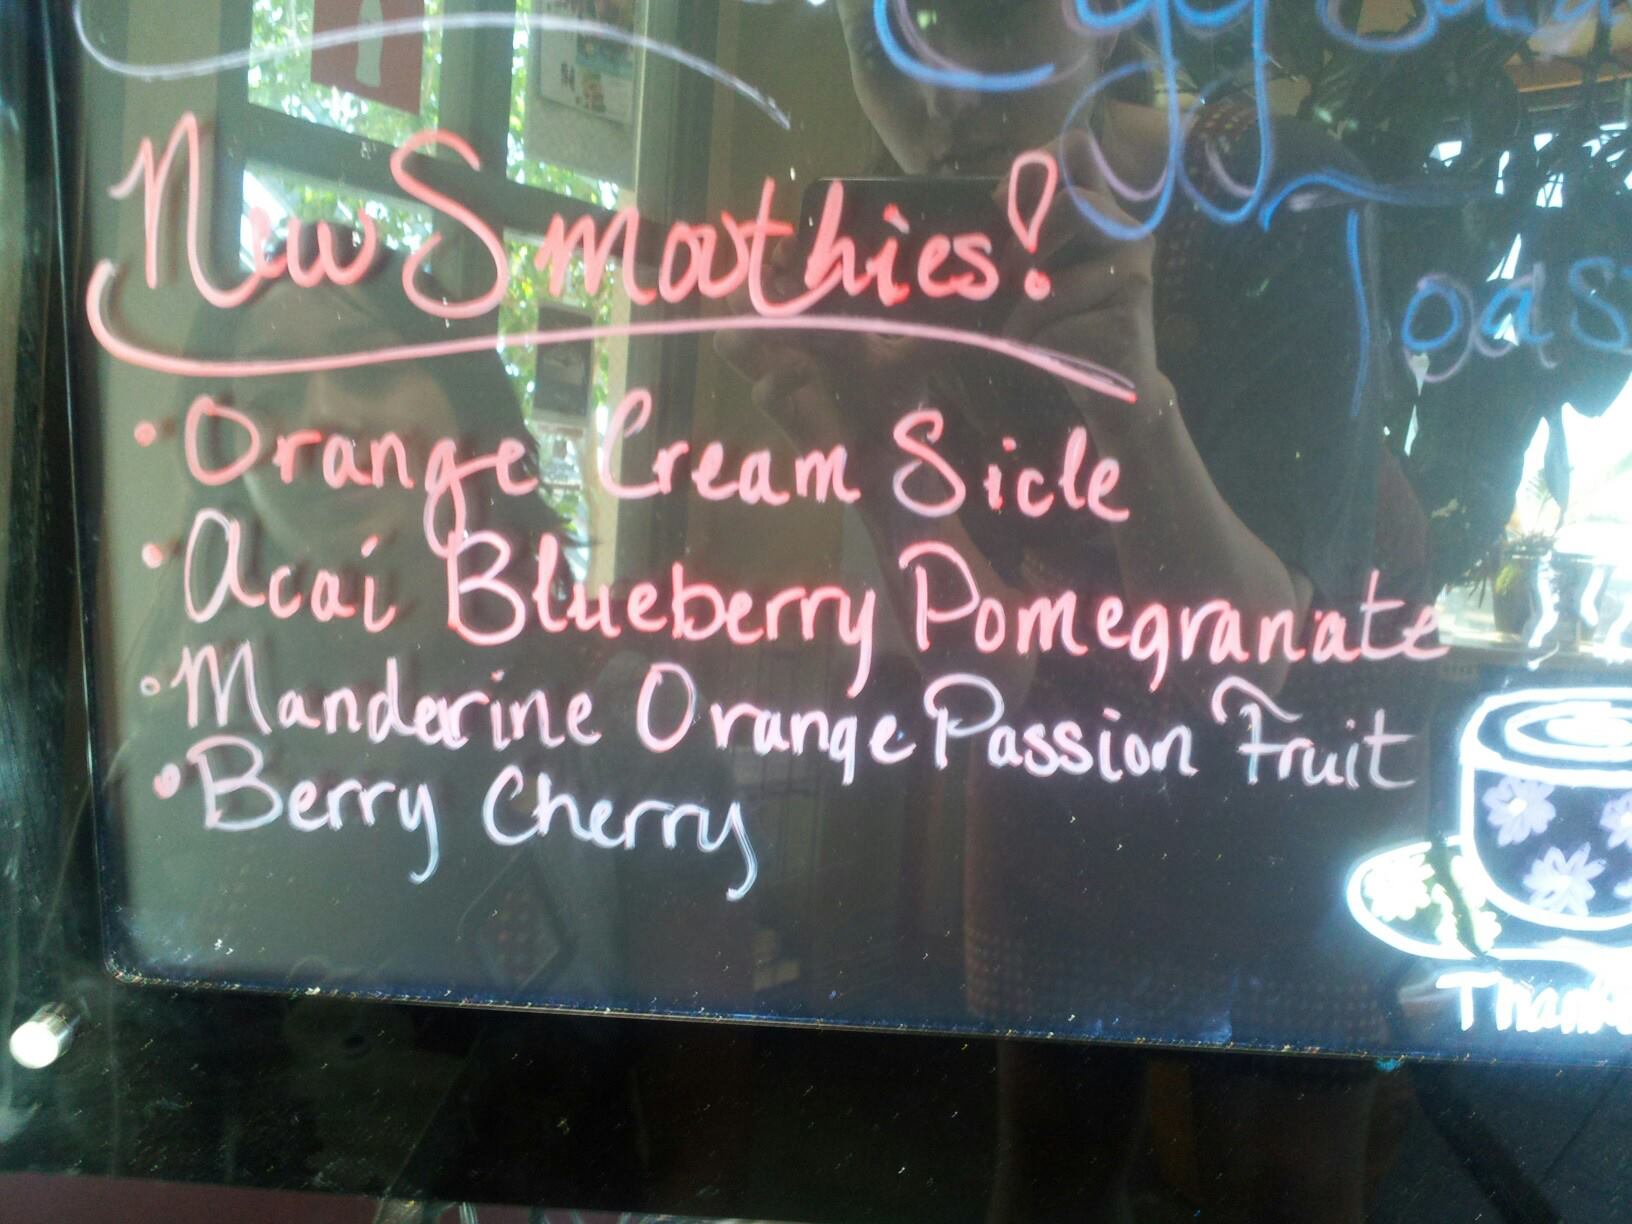 New Smoothies!
• Orange Cream Sicle
• Acai Blueberry Pomegranate
• Manderine Orange Passion Fruit
• Berry Cherry